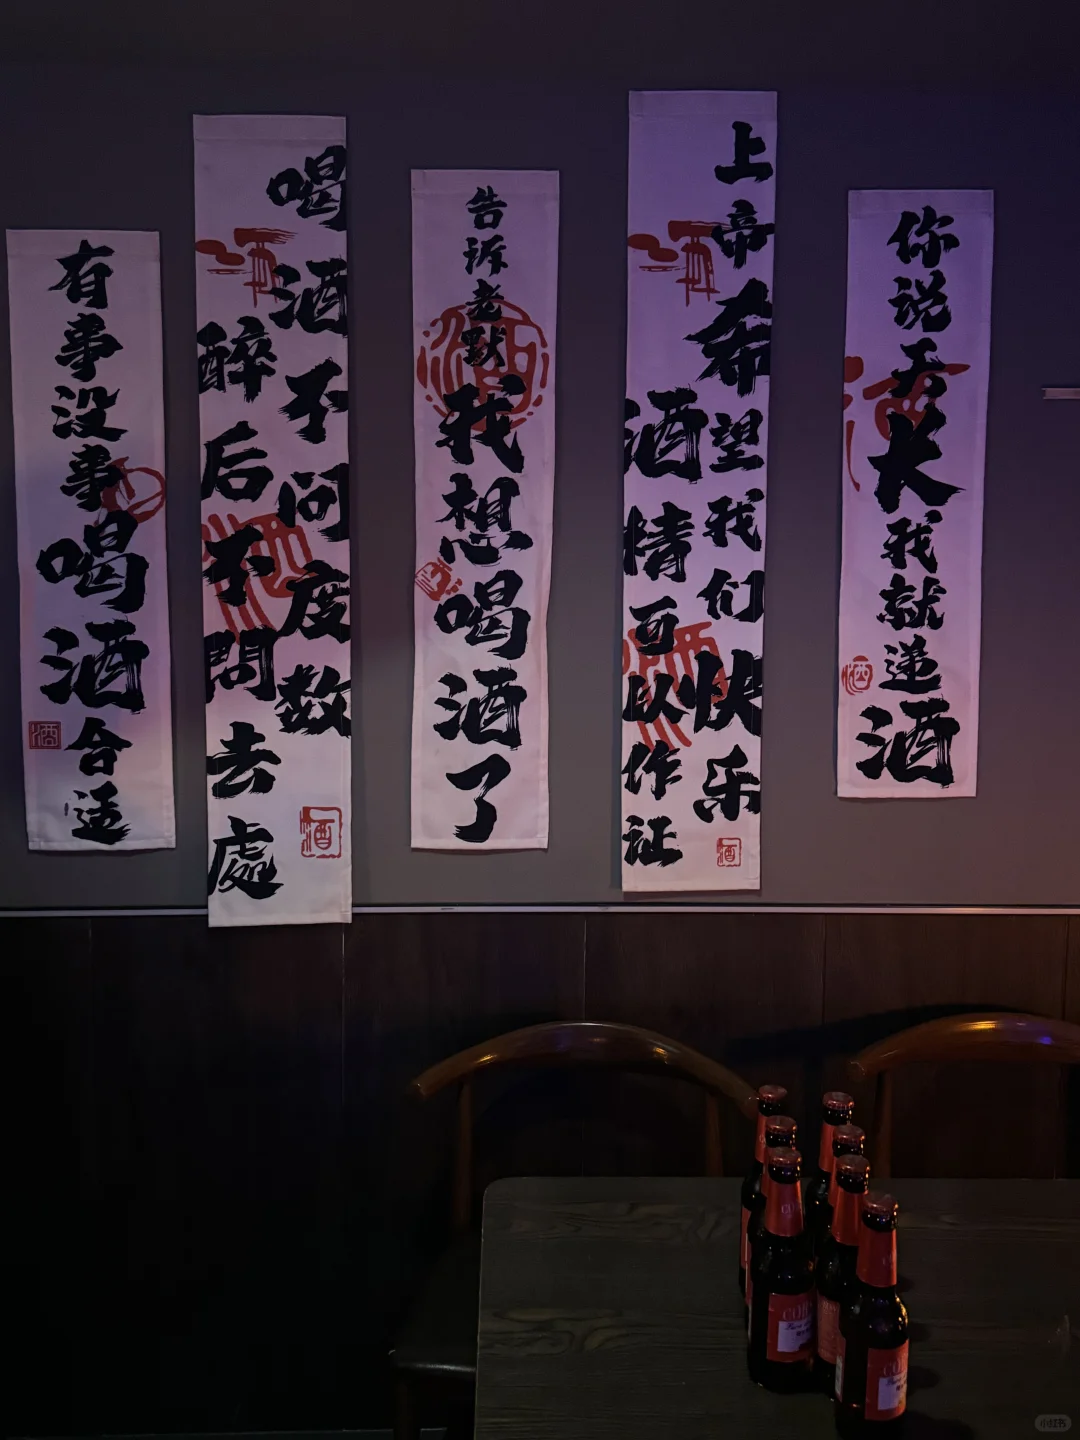 有事没事喝酒合适
喝酒不问度数
醉后不問去處
告诉老默我想喝酒了
上帝希望我们快乐
酒情可以作证
你说天大我就递酒
酒
酒
酒
酒
酒
酒
酒
酒
小红书